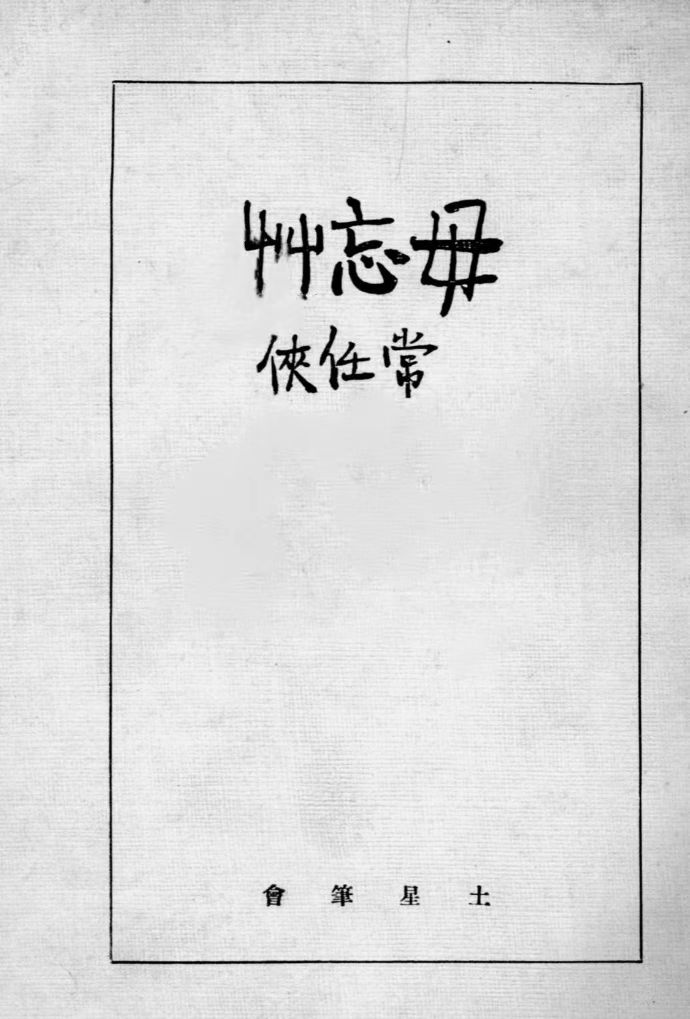 毋忘艸
常任俠
土星筆會